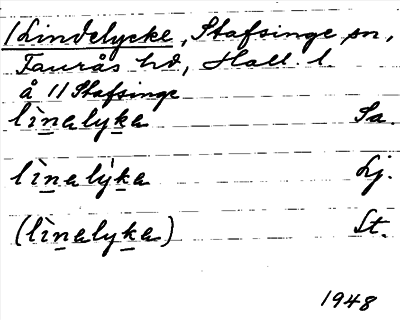 /Lindelycke, Stafsinge sn,
Faurås hd, Hall. l
å 11 Stafsinge
lìnalyka Sa.
lìnalỳka Lj.
(lìnalyka) St.
1948